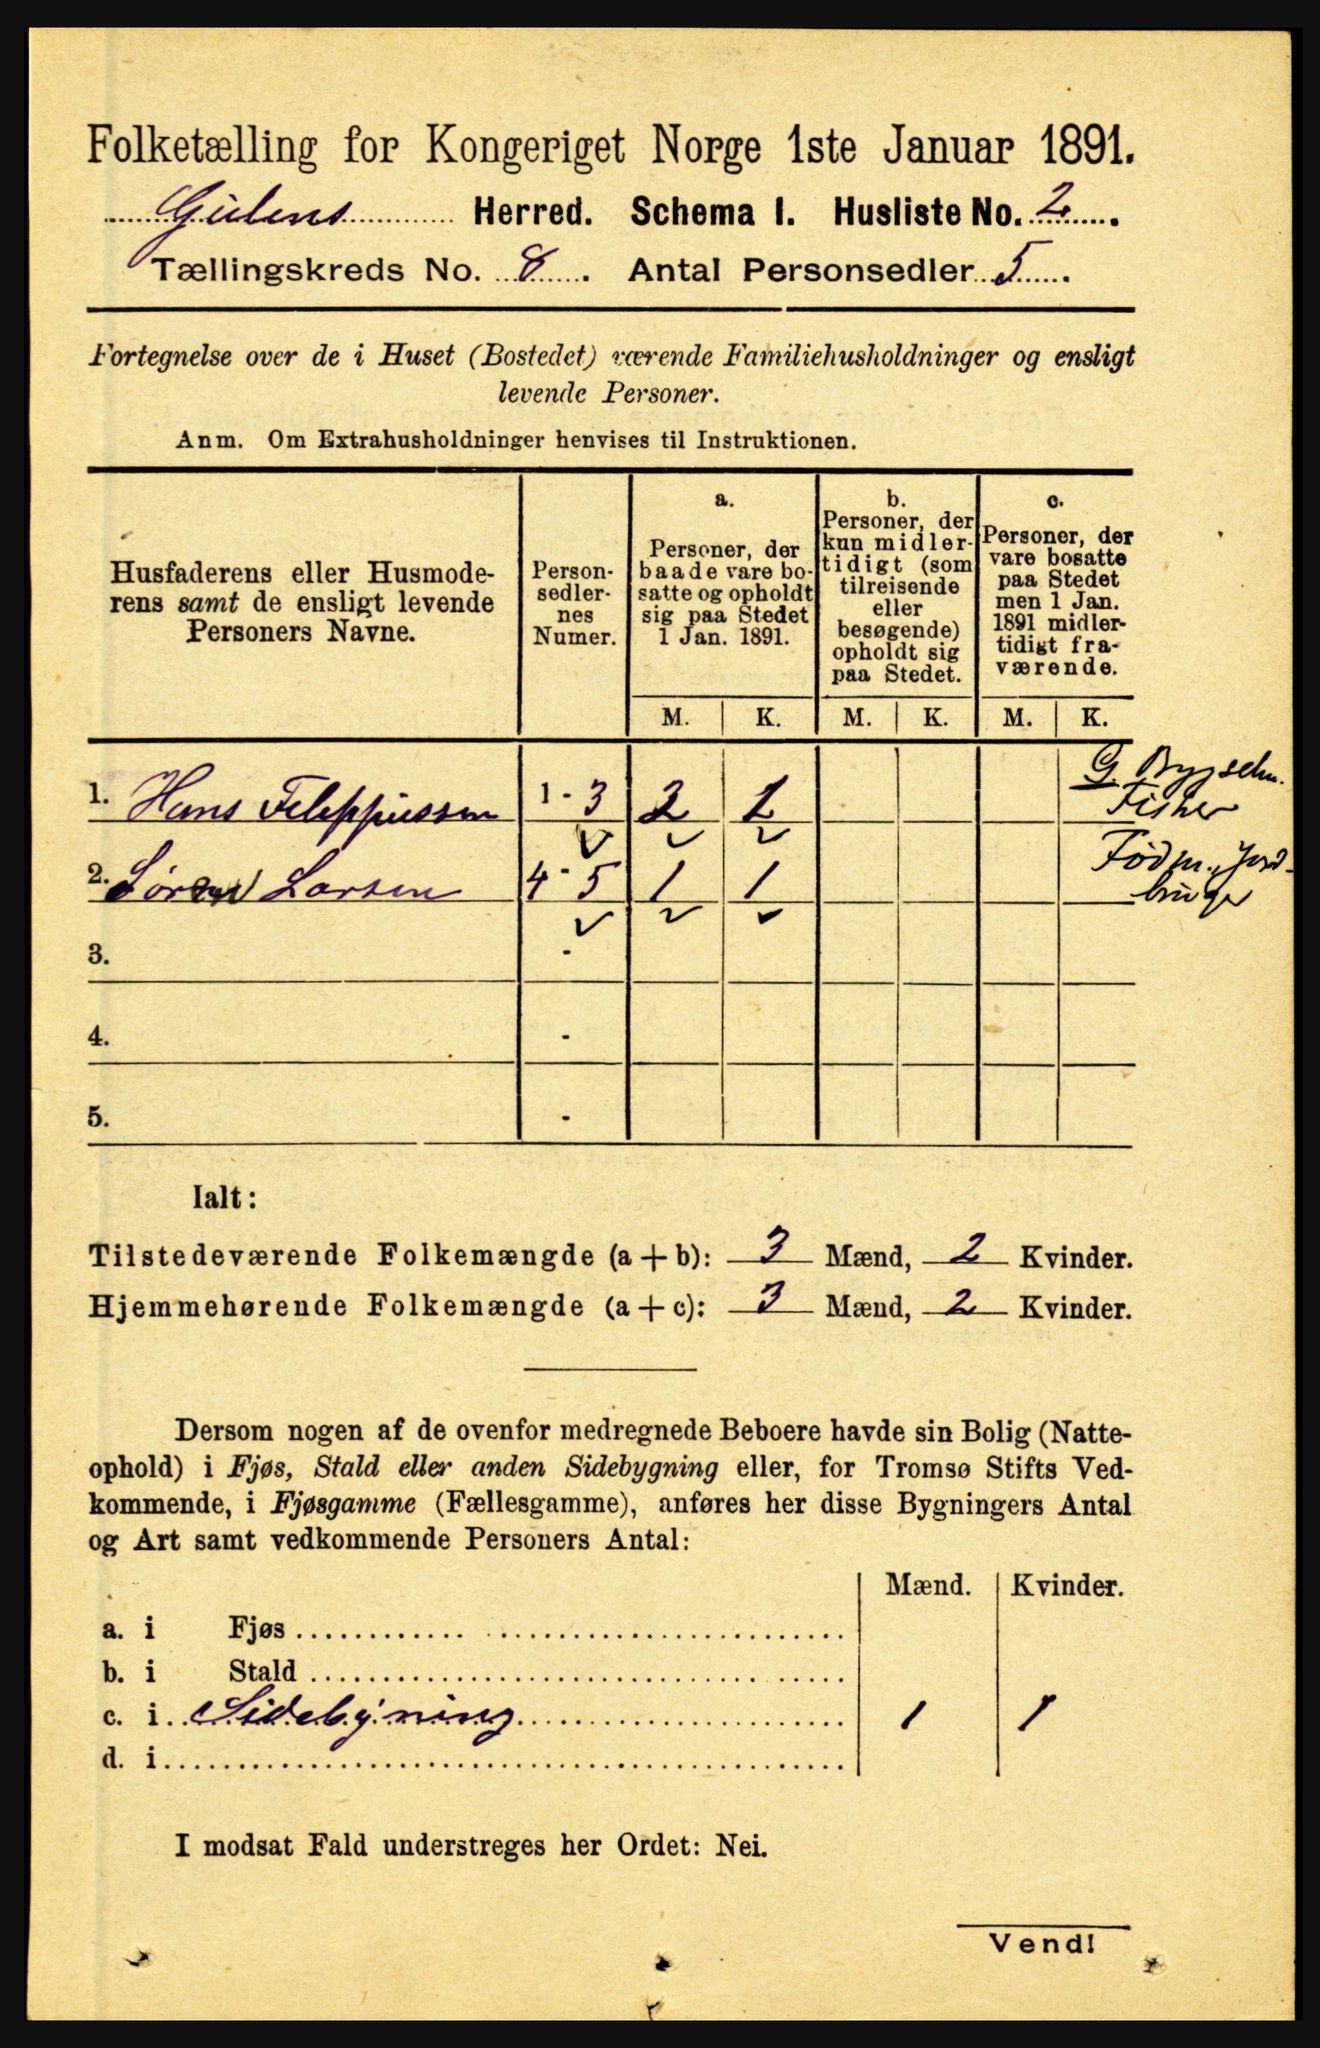 Folketælling for Kongeriget Norge 1ste Januar 1891.
Gulens Herred. Schema I. Husliste No. 2.
Tællingskreds No. 8. Antal Personsedler 5.
Fortegnelse over de i Huset (Bostedet) værende Familiehusholdninger og ensligt
levende Personer.
Anm. Om Extrahusholdninger henvises til Instruktionen.
Husfaderens eller Husmode-
rens samt de ensligt levende
Personers Navne.
Person-
sedler-
nes
Numer.
a.
Personer, der
baade vare bo-
satte og opholdt
sig paa Stedet
1 Jan. 1891.
b.
Personer, der
kun midler-
tidigt (som
tilreisende
eller
besøgende)
opholdt sig
paa Stedet.
c.
Personer, der
vare bosatte
paa Stedet
men 1 Jan.
1891 midler-
tidigt fra-
værende.
M. K. M. K. M. K.
G. Bygselm.
Fisker
1. Hans Fileppussen 1 - 3 2 1
Födm., Jord-
bruger
2. Sören Larsen 4 - 5 1 1
3. -
4. -
5. -
Ialt:
Tilstedeværende Folkemængde (a + b): 3 Mænd, 2 Kvinder.
Hjemmehørende Folkemængde (a + c): 3 Mænd, 2 Kvinder.
Dersom nogen af de ovenfor medregnede Beboere havde sin Bolig (Natte-
ophold) i Fjøs, Stald eller anden Sidebygning eller, for Tromsø Stifts Ved-
kommende, i Fjøsgamme (Fællesgamme), anføres her disse Bygningers Antal
og Art samt vedkommende Personers Antal:
Mænd. Kvinder.
a. i Fjøs
b. i Stald
c. i Sidebygning 1 1
d. i
I modsat Fald understreges her Ordet: Nei.
Vend!